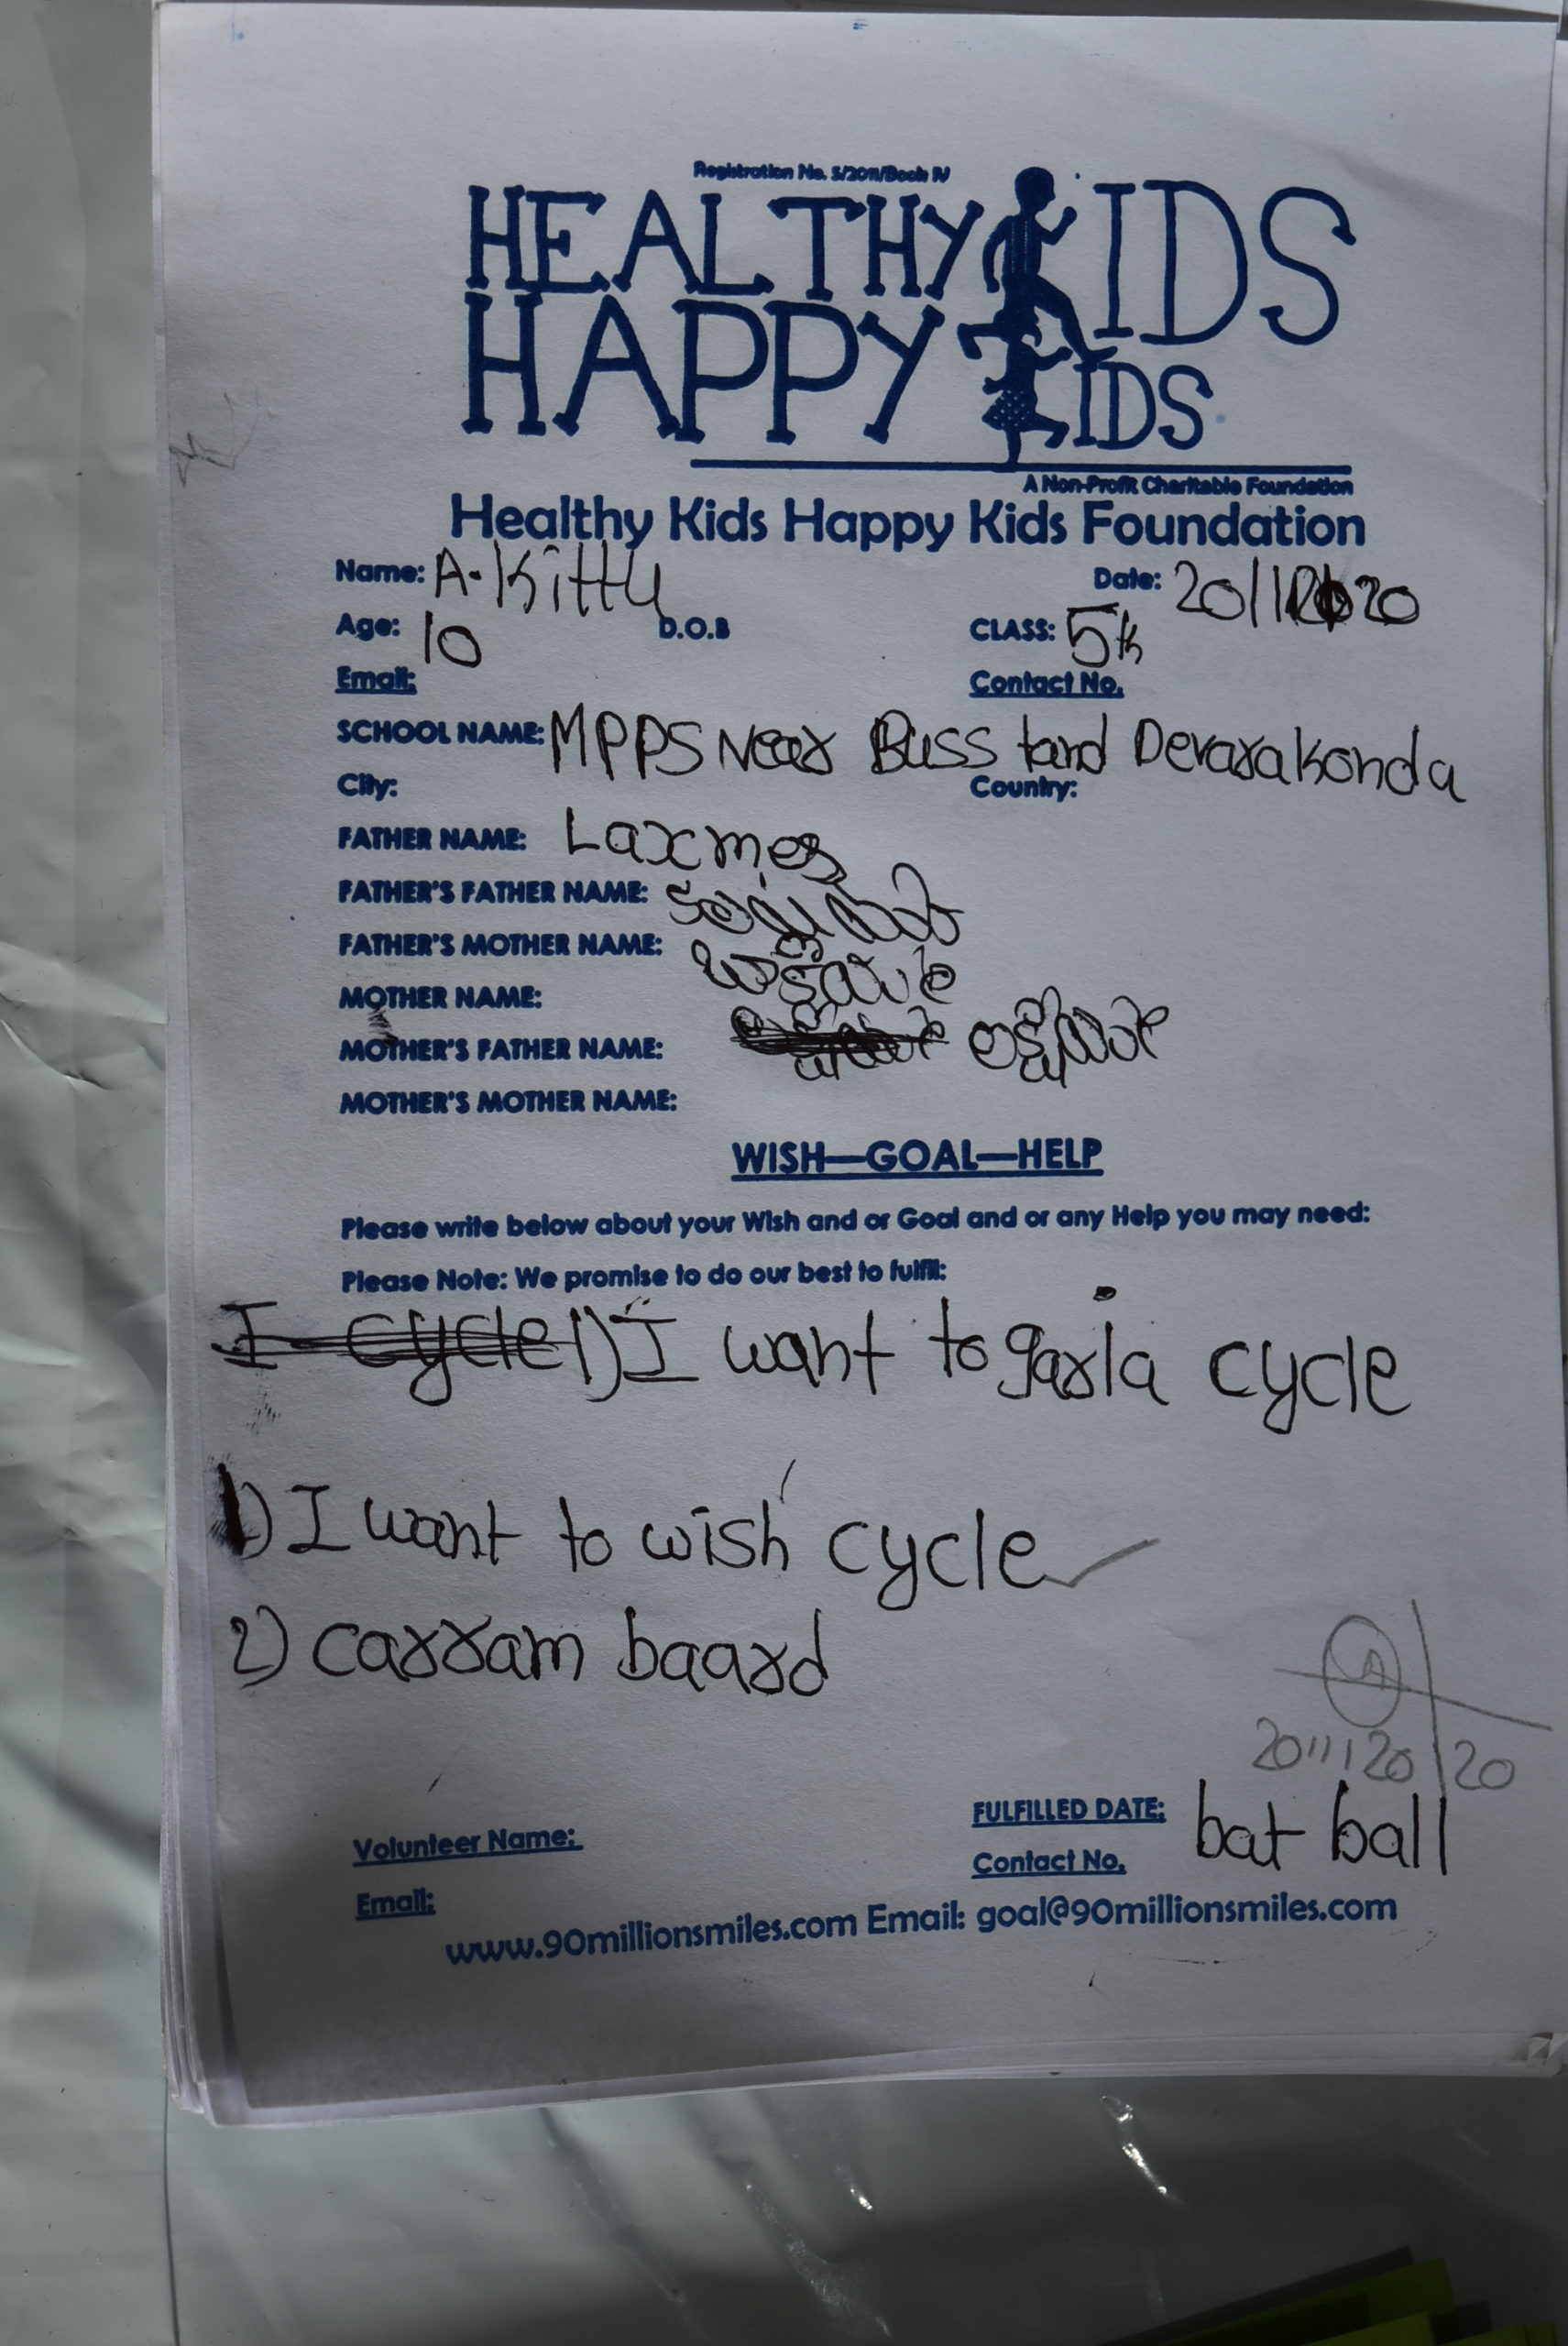 Registration No. 5/2011/Book IV
HEALTHY KIDS
HAPPY KIDS
A Non-Profit Charitable Foundation
Healthy Kids Happy Kids Foundation
Name: A. Kittu Date: 20/
Age: 10 D.O.B CLASS: 5th
Email: Contact No.
SCHOOL NAME: MPPS Near Buss tand Devarakonda
City: Country:
FATHER NAME: Laxmes
FATHER'S FATHER NAME:
FATHER'S MOTHER NAME:
MOTHER NAME:
MOTHER'S FATHER NAME:
MOTHER'S MOTHER NAME:
WISH—GOAL—HELP
Please write below about your Wish and or Goal and or any Help you may need:
Please Note: We promise to do our best to fulfil:
I cycle 1) I want to garla cycle
1) I want to wish cycle
2) carram baard
20/11/20 20
FULFILLED DATE: bat ball
Volunteer Name:
Contact No.
Email:
www.90millionsmiles.com Email: goal@90millionsmiles.com